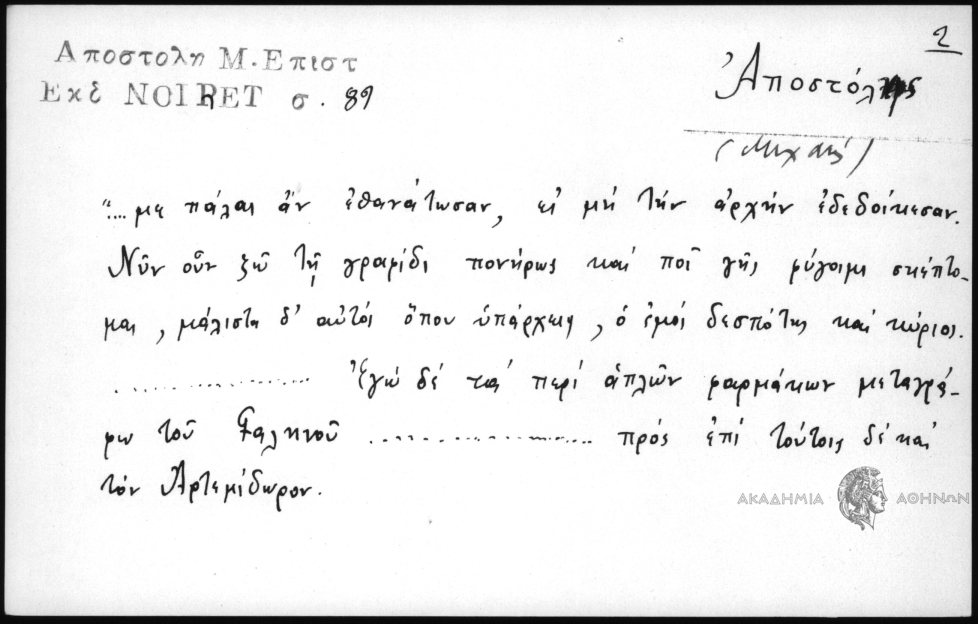 2
Αποστολη Μ. Επιστ
Εκδ NOIRET σ. 89
Ἀποστόλης
(Μιχαήλ)
"... με πάλαι ἄν ἐθανάτωσαν, εἰ μή τήν ἀρχήν ἐδεδοίκεσαν.
Νῦν οὖν ζῶ τῇ γραφίδι πονήρως καί ποῖ γῆς φύγοιμι σκέπτο-
μαι, μάλιστα δ' αὐτοί ὅπου ὑπάρχεις, ὁ ἐμοί δεσπότης καί κύριος.
.................. Ἐγώ δέ τά περί ἁπλῶν φαρμάκων μεταγρά-
φω τοῦ Γαληνοῦ .................... πρός ἐπί τούτοις δέ καί
τόν Ἀρτεμίδωρον.
ΑΚΑΔΗΜΙΑ ΑΘΗΝΩΝ